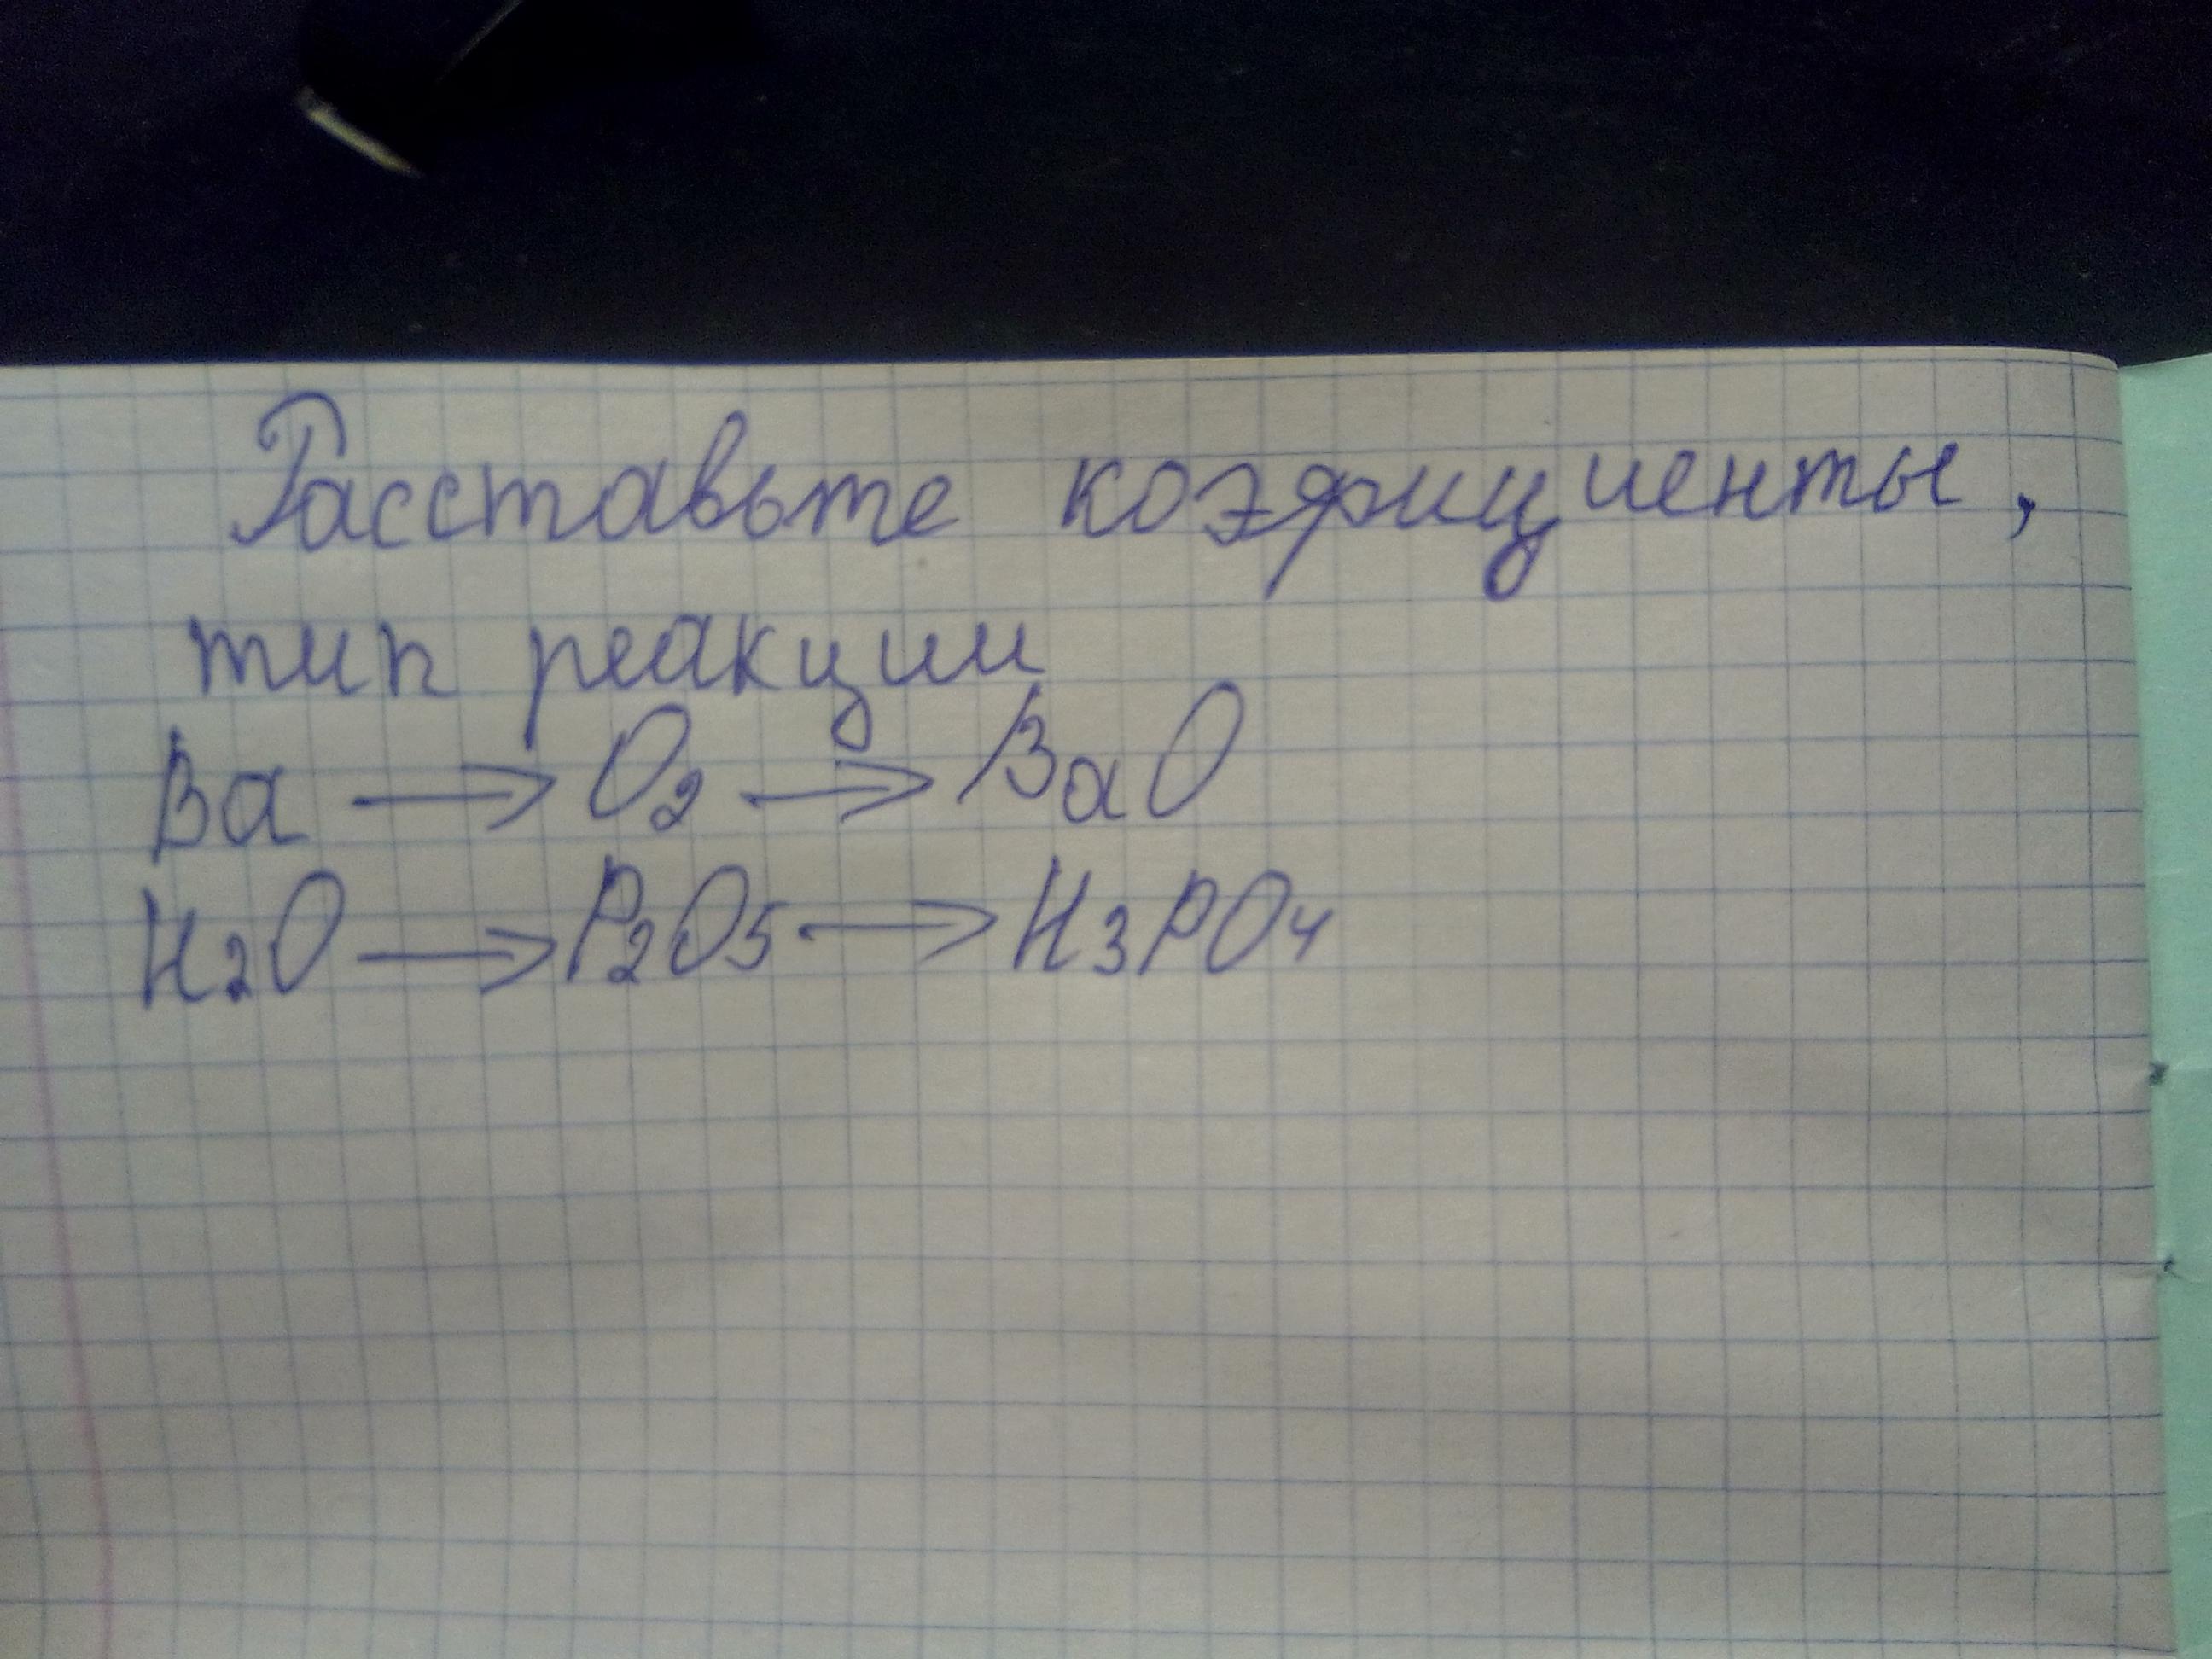 Расставьте коэфициенты,
тип реакции
Ba → O₂ → BaO
H₂O → P₂O₅ → H₃PO₄